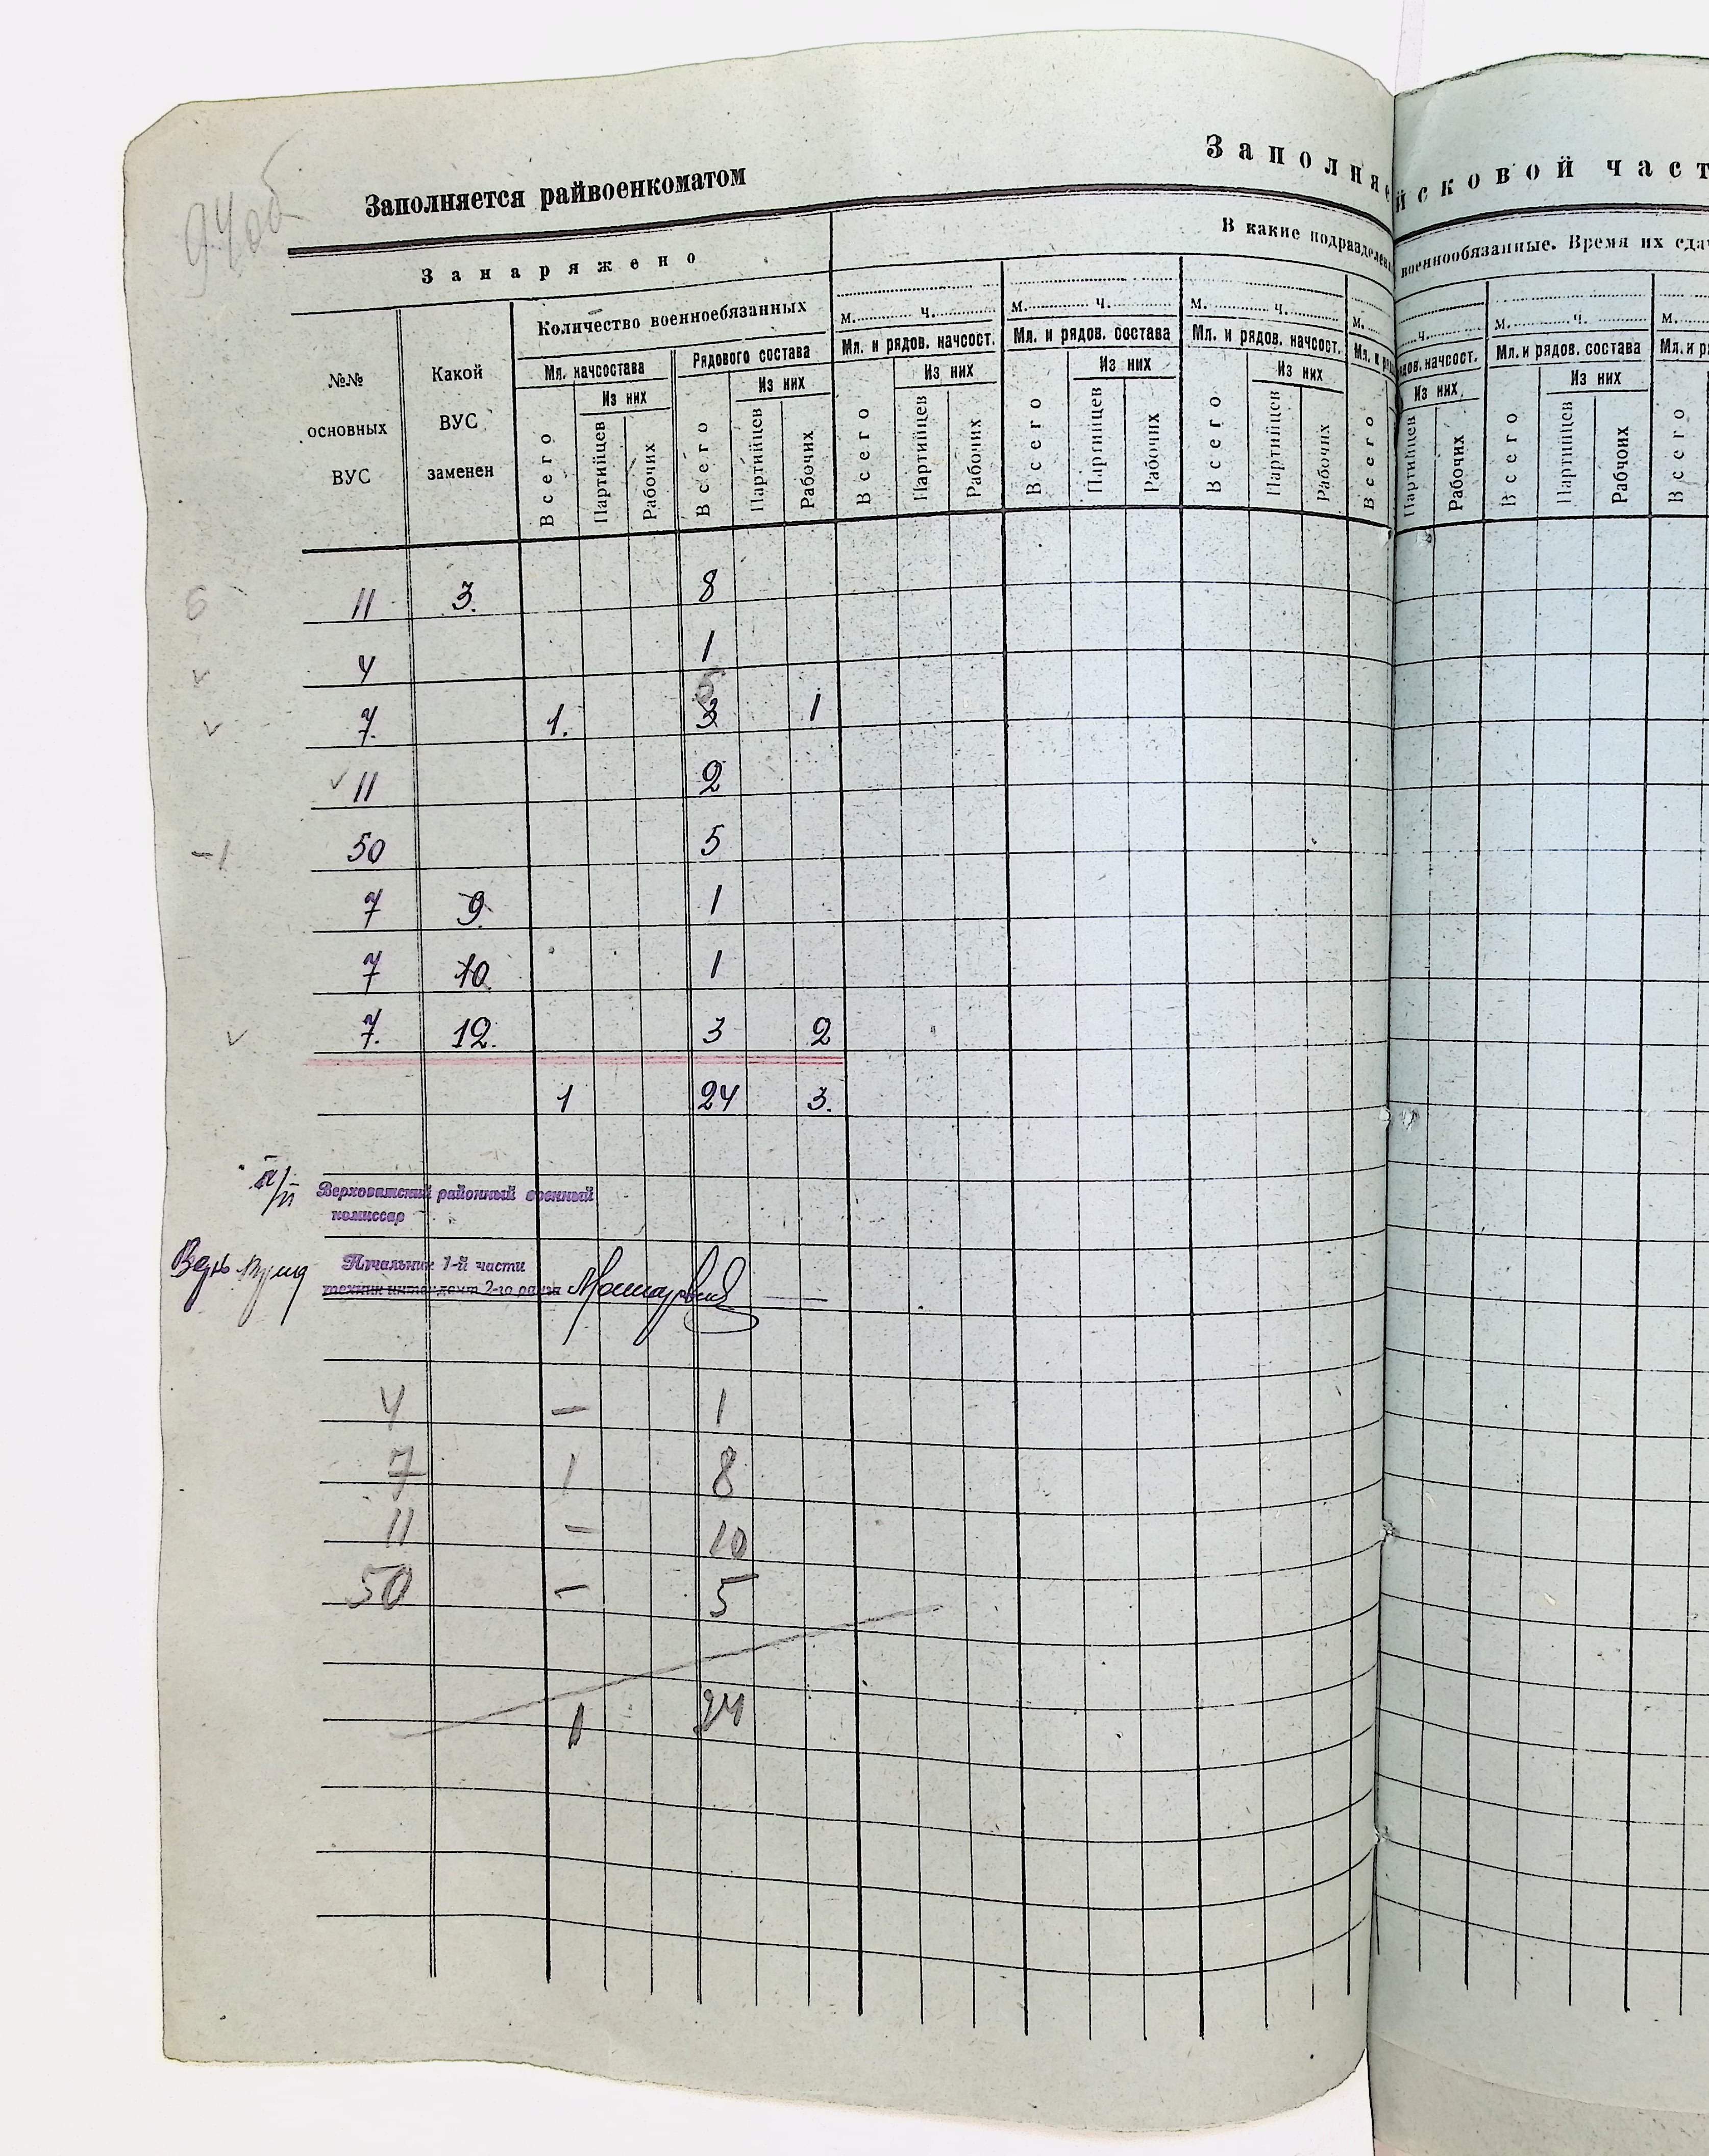 94об
Заполняется райвоенкоматом
Заполняе
йсковой част
Занаряжено
В какие подразделен
военнообязанные. Время их сда
№№ основных ВУС
Какой ВУС заменен
Количество военнообязанных
м. ч.
м. ч.
м. ч.
м.
ч.
м. ч.
м.
Мл. начсостава
Рядового состава
Мл. и рядов. начсост.
Мл. и рядов. состава
Мл. и рядов. начсост.
Мл. и ряд
дов. начсост.
Мл. и рядов. состава
Мл. и р
Из них
Из них
Из них
Из них
Из них
Из них
Из них
Всего Партийцев Рабочих Всего Партийцев Рабочих Всего Партийцев Рабочих Всего Партийцев Рабочих Всего Партийцев Рабочих Всего Партийцев Рабочих Всего Партийцев Рабчоих Всего
6 11 3. 8
✓ 4 1
5
✓ 7. 1. 3 1
✓ 11 2
-1 50 5
7 9. 1
7 10. 1
✓ 7. 12. 3 2
1 24 3.
п/п Верховажский районный военный
комиссар
Верно: Начальник 1-й части
техник интендант 2-го ранга
4 – 1
7 1 8
11 – 10
50 – 5
1 24